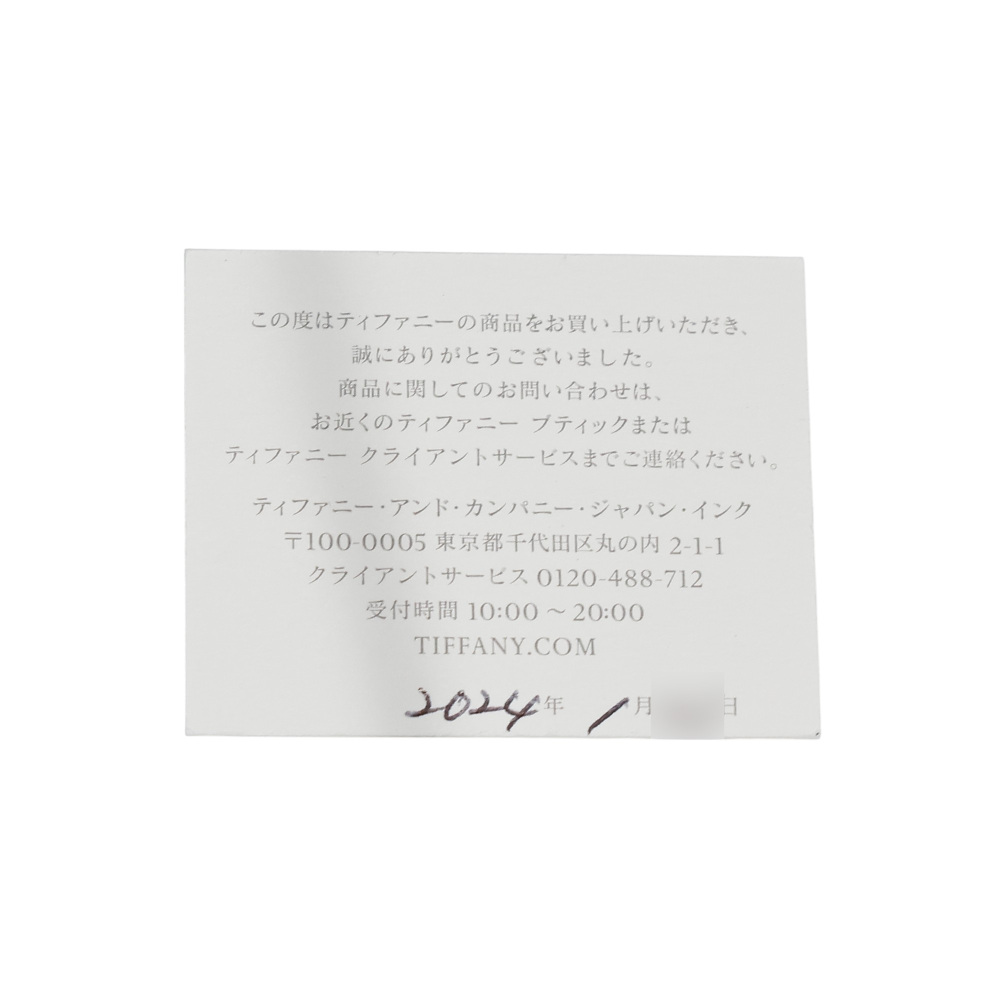 この度はティファニーの商品をお買い上げいただき、
誠にありがとうございました。
商品に関してのお問い合わせは、
お近くのティファニー ブティックまたは
ティファニー クライアントサービスまでご連絡ください。
ティファニー・アンド・カンパニー・ジャパン・インク
〒100-0005 東京都千代田区丸の内 2-1-1
クライアントサービス 0120-488-712
受付時間 10:00 ～ 20:00
TIFFANY.COM
2024年 1月 日